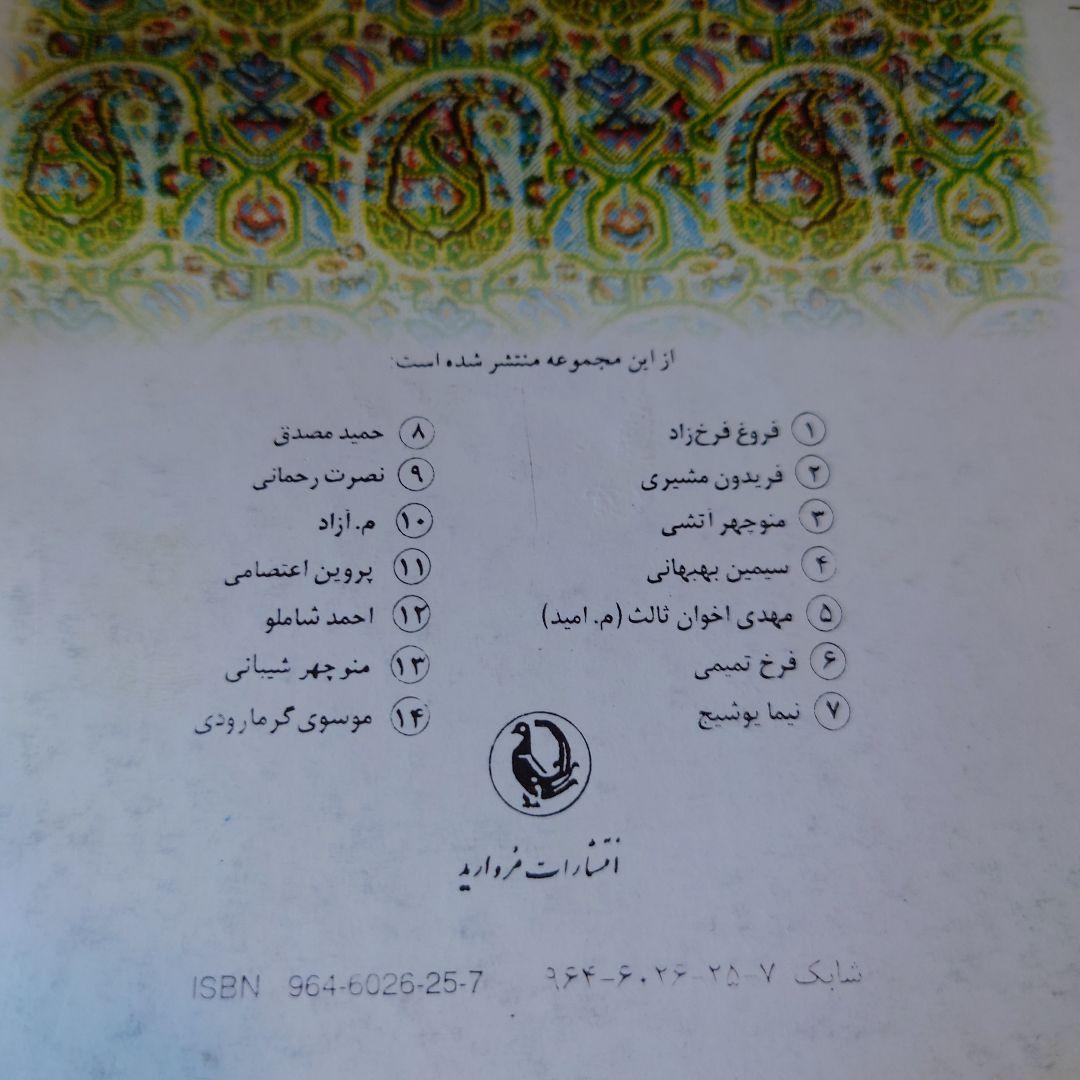 از این مجموعه منتشر شده است:
۱ فروغ فرخ‌زاد
۲ فریدون مشیری
۳ منوچهر آتشی
۴ سیمین بهبهانی
۵ مهدی اخوان ثالث (م. امید)
۶ فرخ تمیمی
۷ نیما یوشیج
۸ حمید مصدق
۹ نصرت رحمانی
۱۰ م. آزاد
۱۱ پروین اعتصامی
۱۲ احمد شاملو
۱۳ منوچهر شیبانی
۱۴ موسوی گرمارودی
انتشارات مروارید
شابک ۹۶۴-۶۰۲۶-۲۵-۷ ISBN 964-6026-25-7